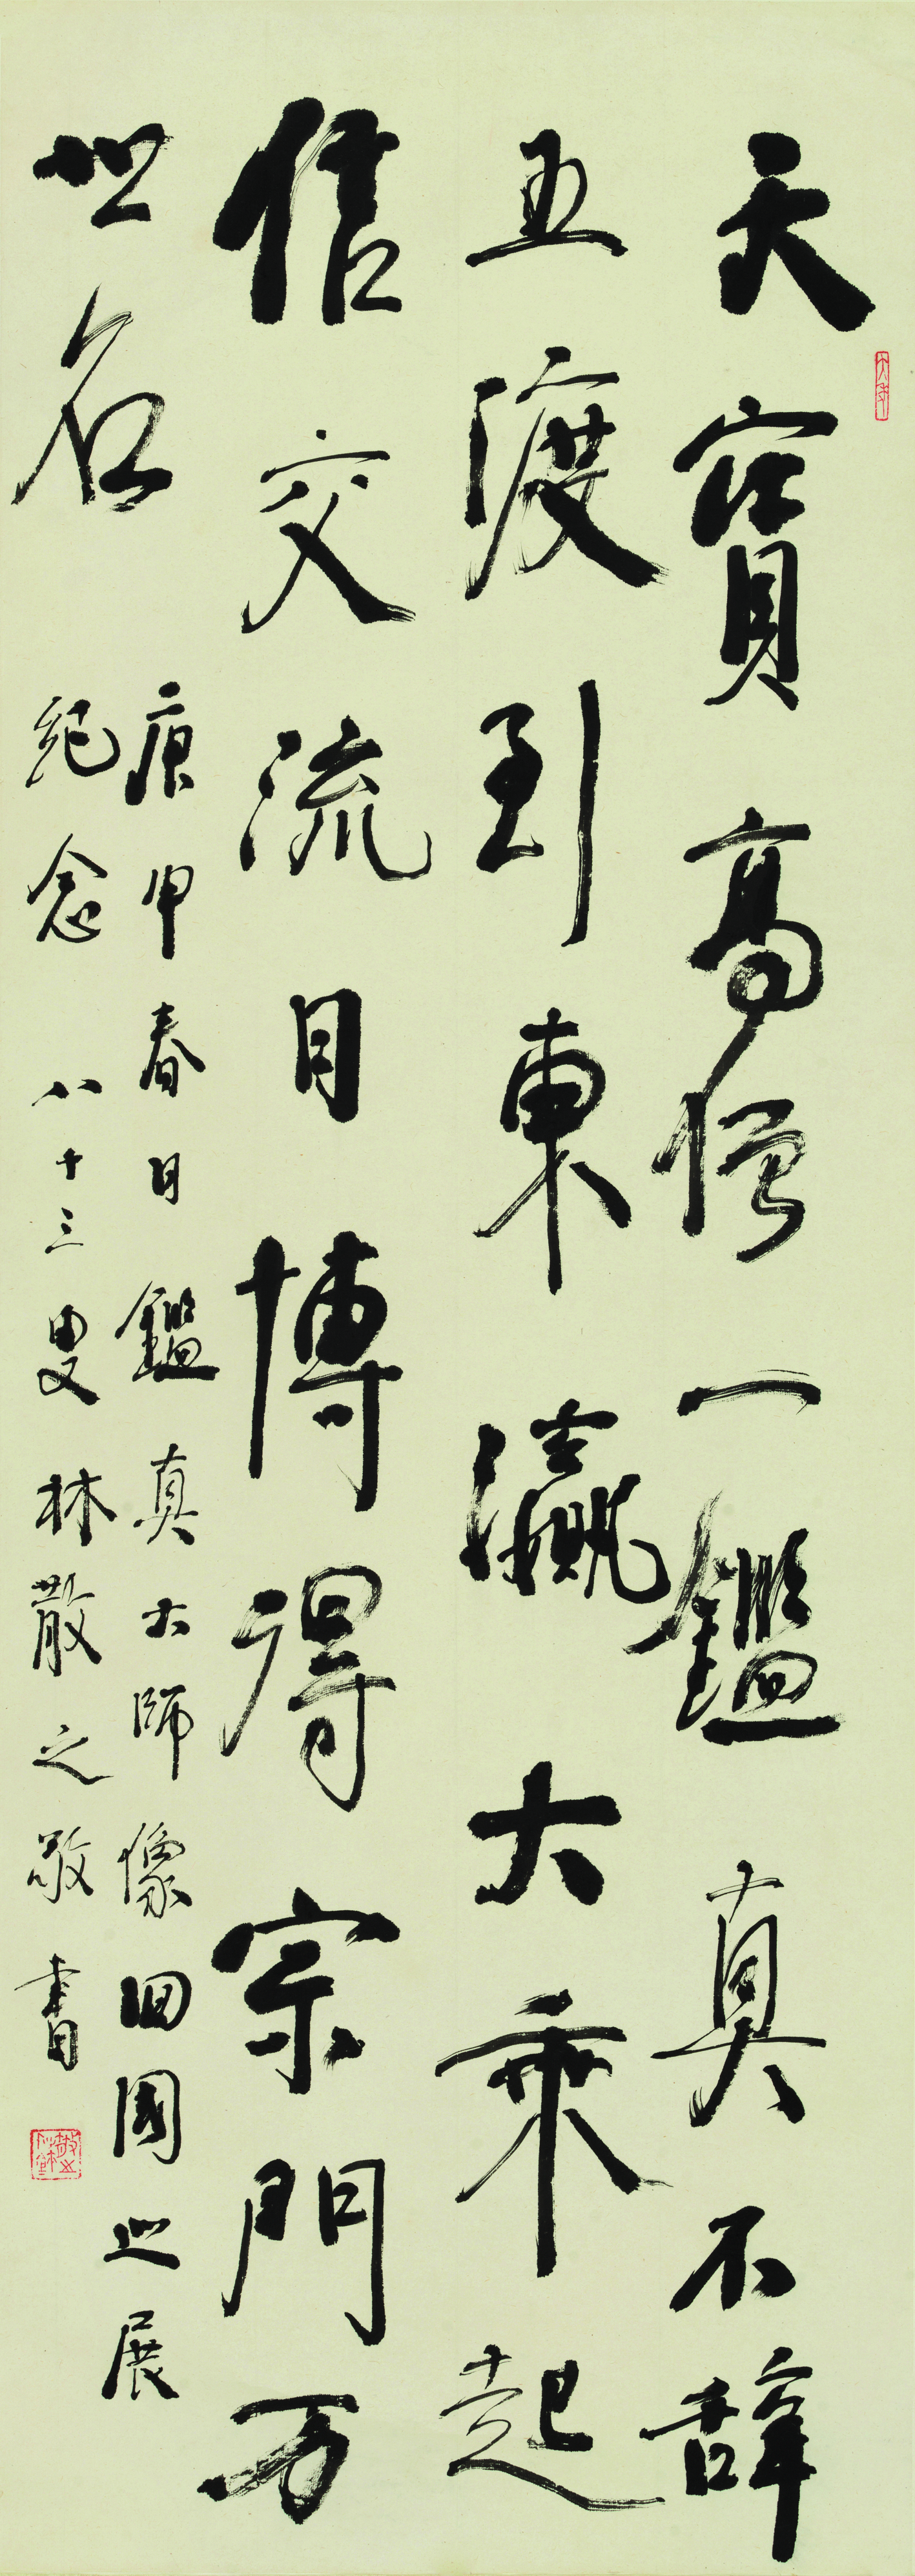 天寶高僧一鑑真不辞
五渡到東瀛大乘起
信交流日博得宗門万
世名
庚申春日鑑真大師像回國巡展
紀念八十三叟林散之敬書